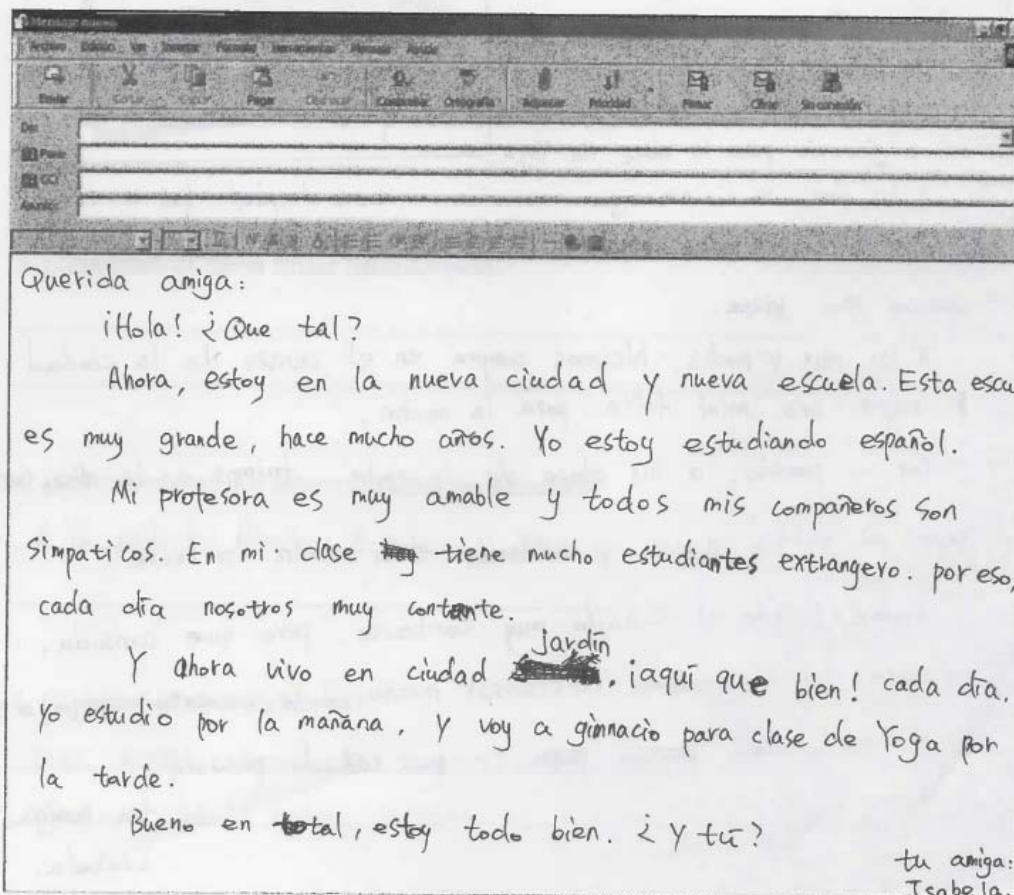 Mensaje nuevo
Archivo Edición Ver Insertar Formato Herramientas Mensaje Ayuda
Enviar Cortar Copiar Pegar Deshacer Comprobar Ortografía Adjuntar Prioridad Firmar Cifrar Sin conexión
De:
Para:
CC:
Asunto:
Querida amiga:
¡Hola! ¿Que tal?
Ahora, estoy en la nueva ciudad y nueva escuela. Esta escu
es muy grande, hace mucho años. Yo estoy estudiando español.
Mi profesora es muy amable y todos mis compañeros son
simpaticos. En mi clase tiene mucho estudiantes extrangero. por eso,
cada día nosotros muy contente.
Y ahora vivo en ciudad jardín. ¡aquí que bien! cada día.
yo estudio por la mañana. Y voy a gimnacio para clase de Yoga por
la tarde.
Bueno en total, estoy todo bien. ¿Y tú?
tu amiga:
Isabela.